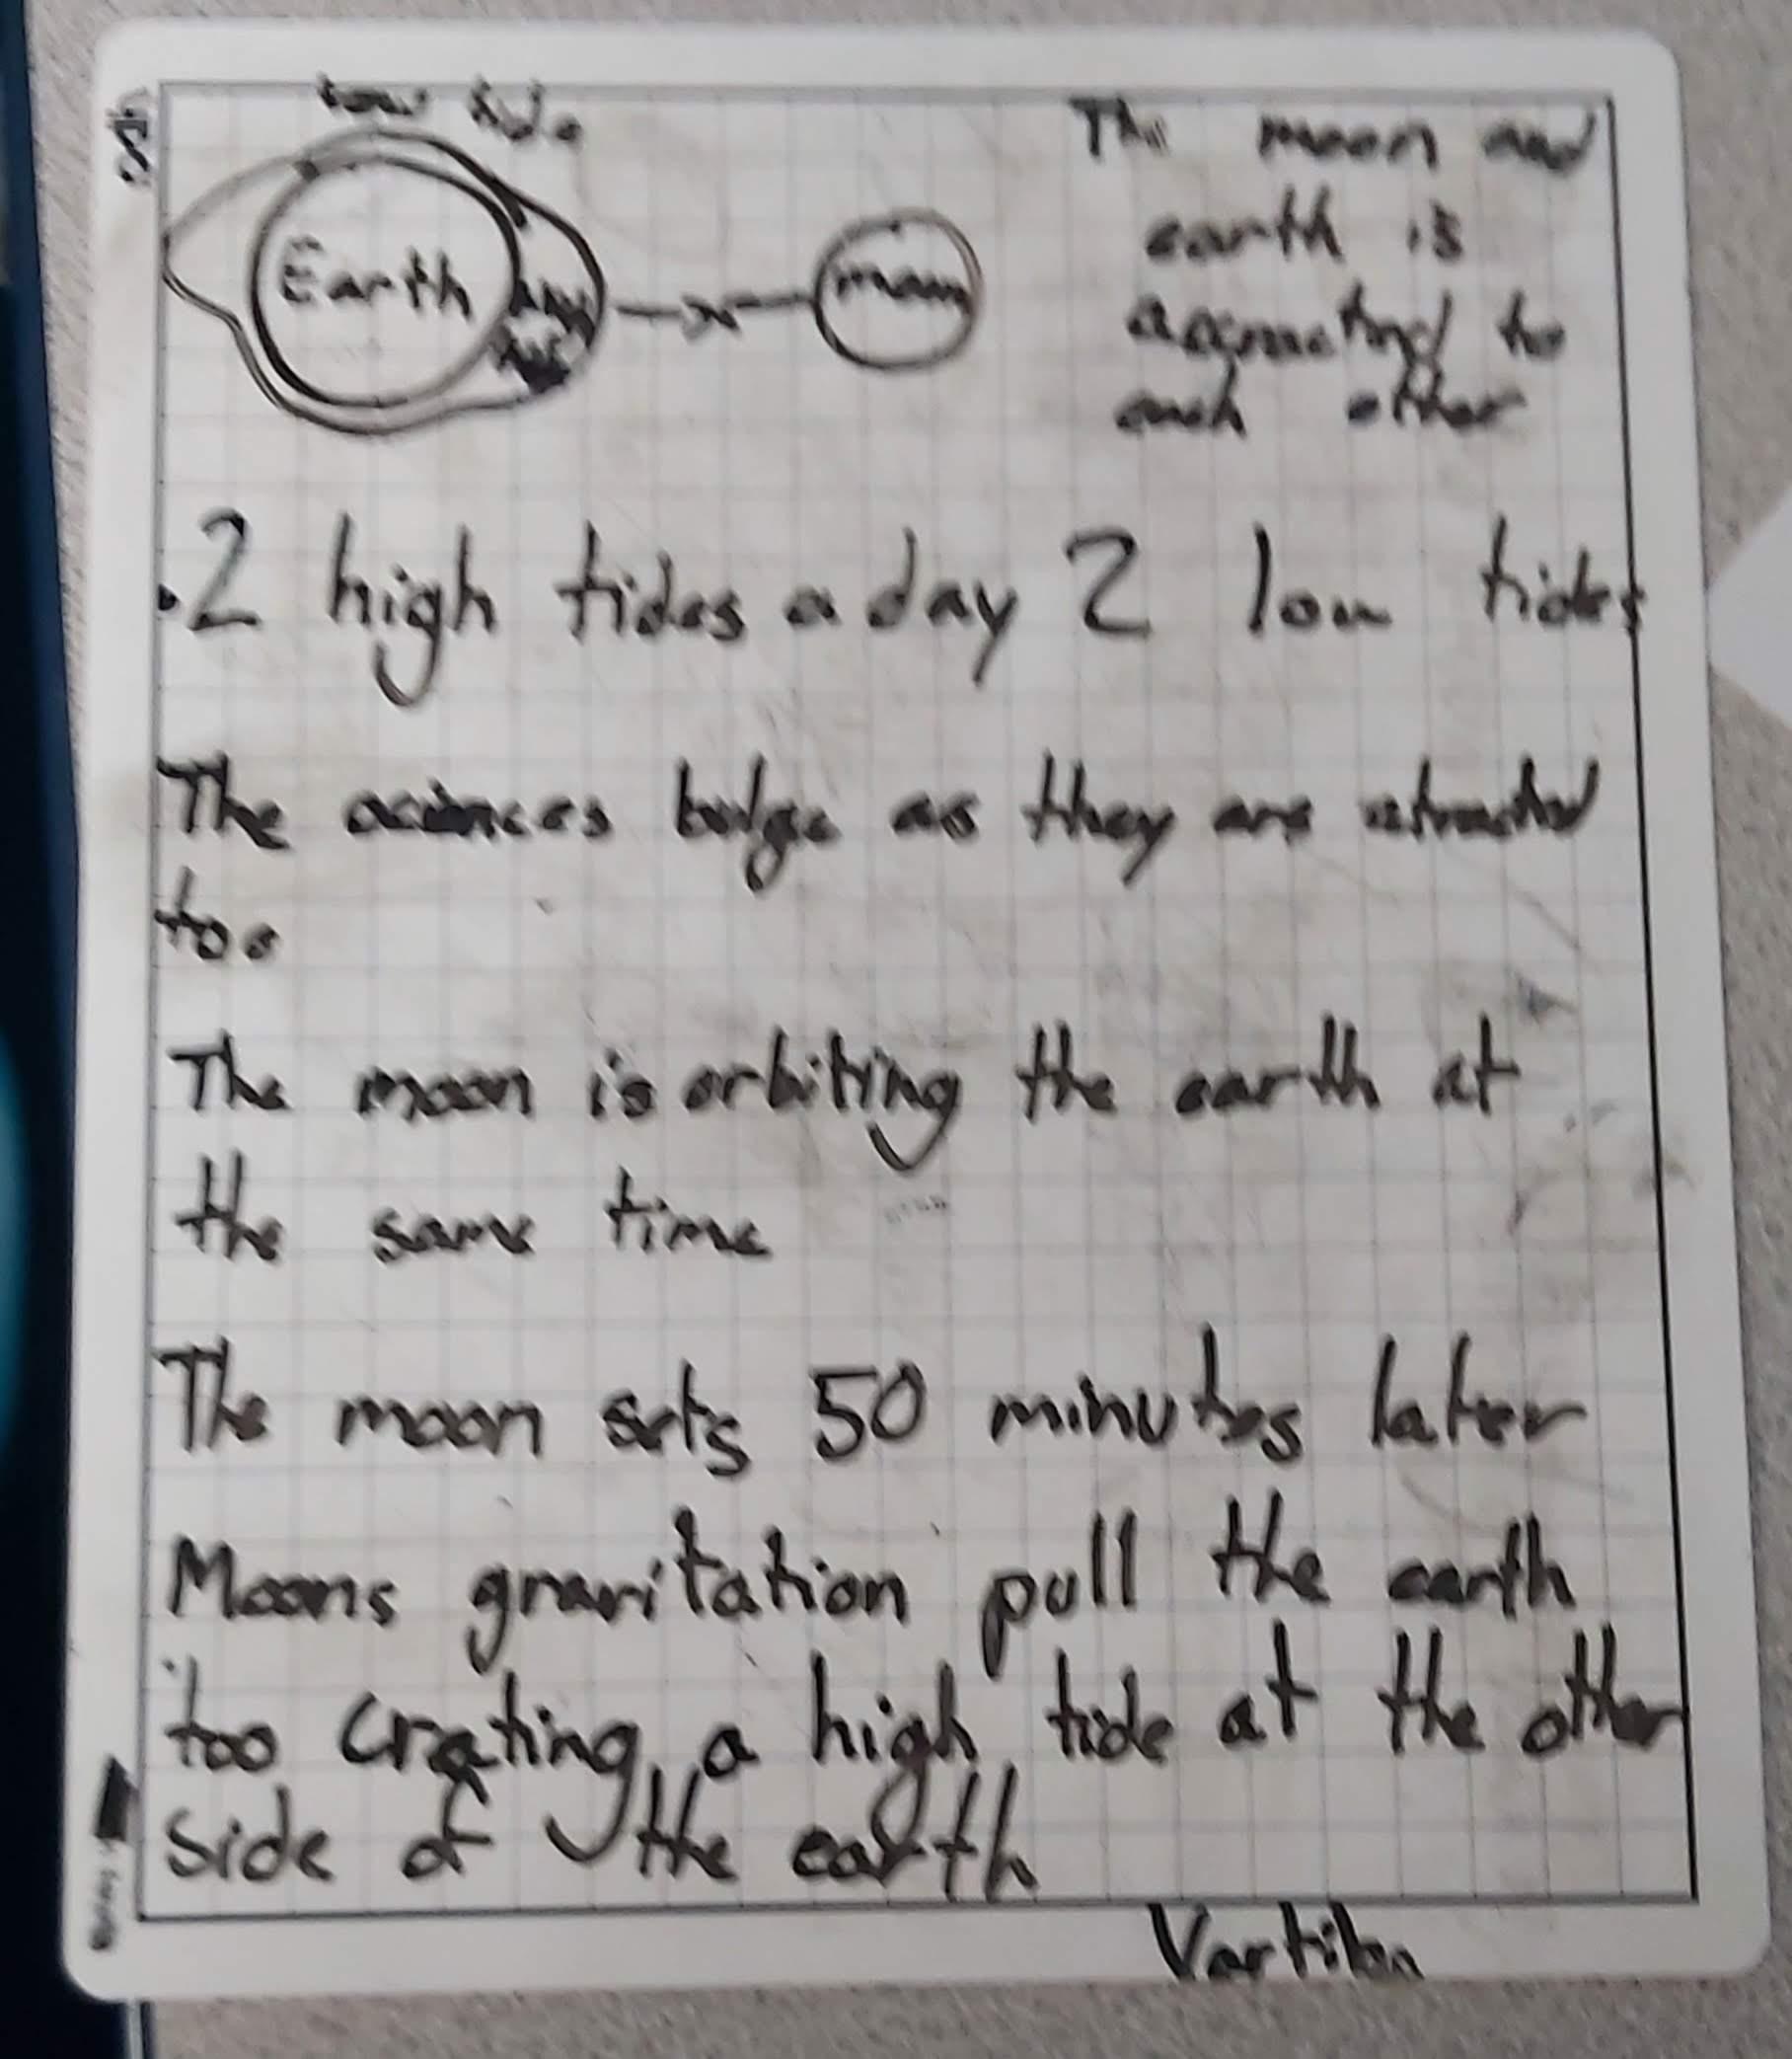 low tide
Earth
high
tide
moon
The moon and
earth is
accracting to
each other
.2 high tides a day 2 low tides
The ocinces bulge as they are attracted
too
The moon is orbiting the earth at
the same time
The moon sets 50 minutes later
Moons gravitation pull the earth
too crating a high tide at the other
side of the earth